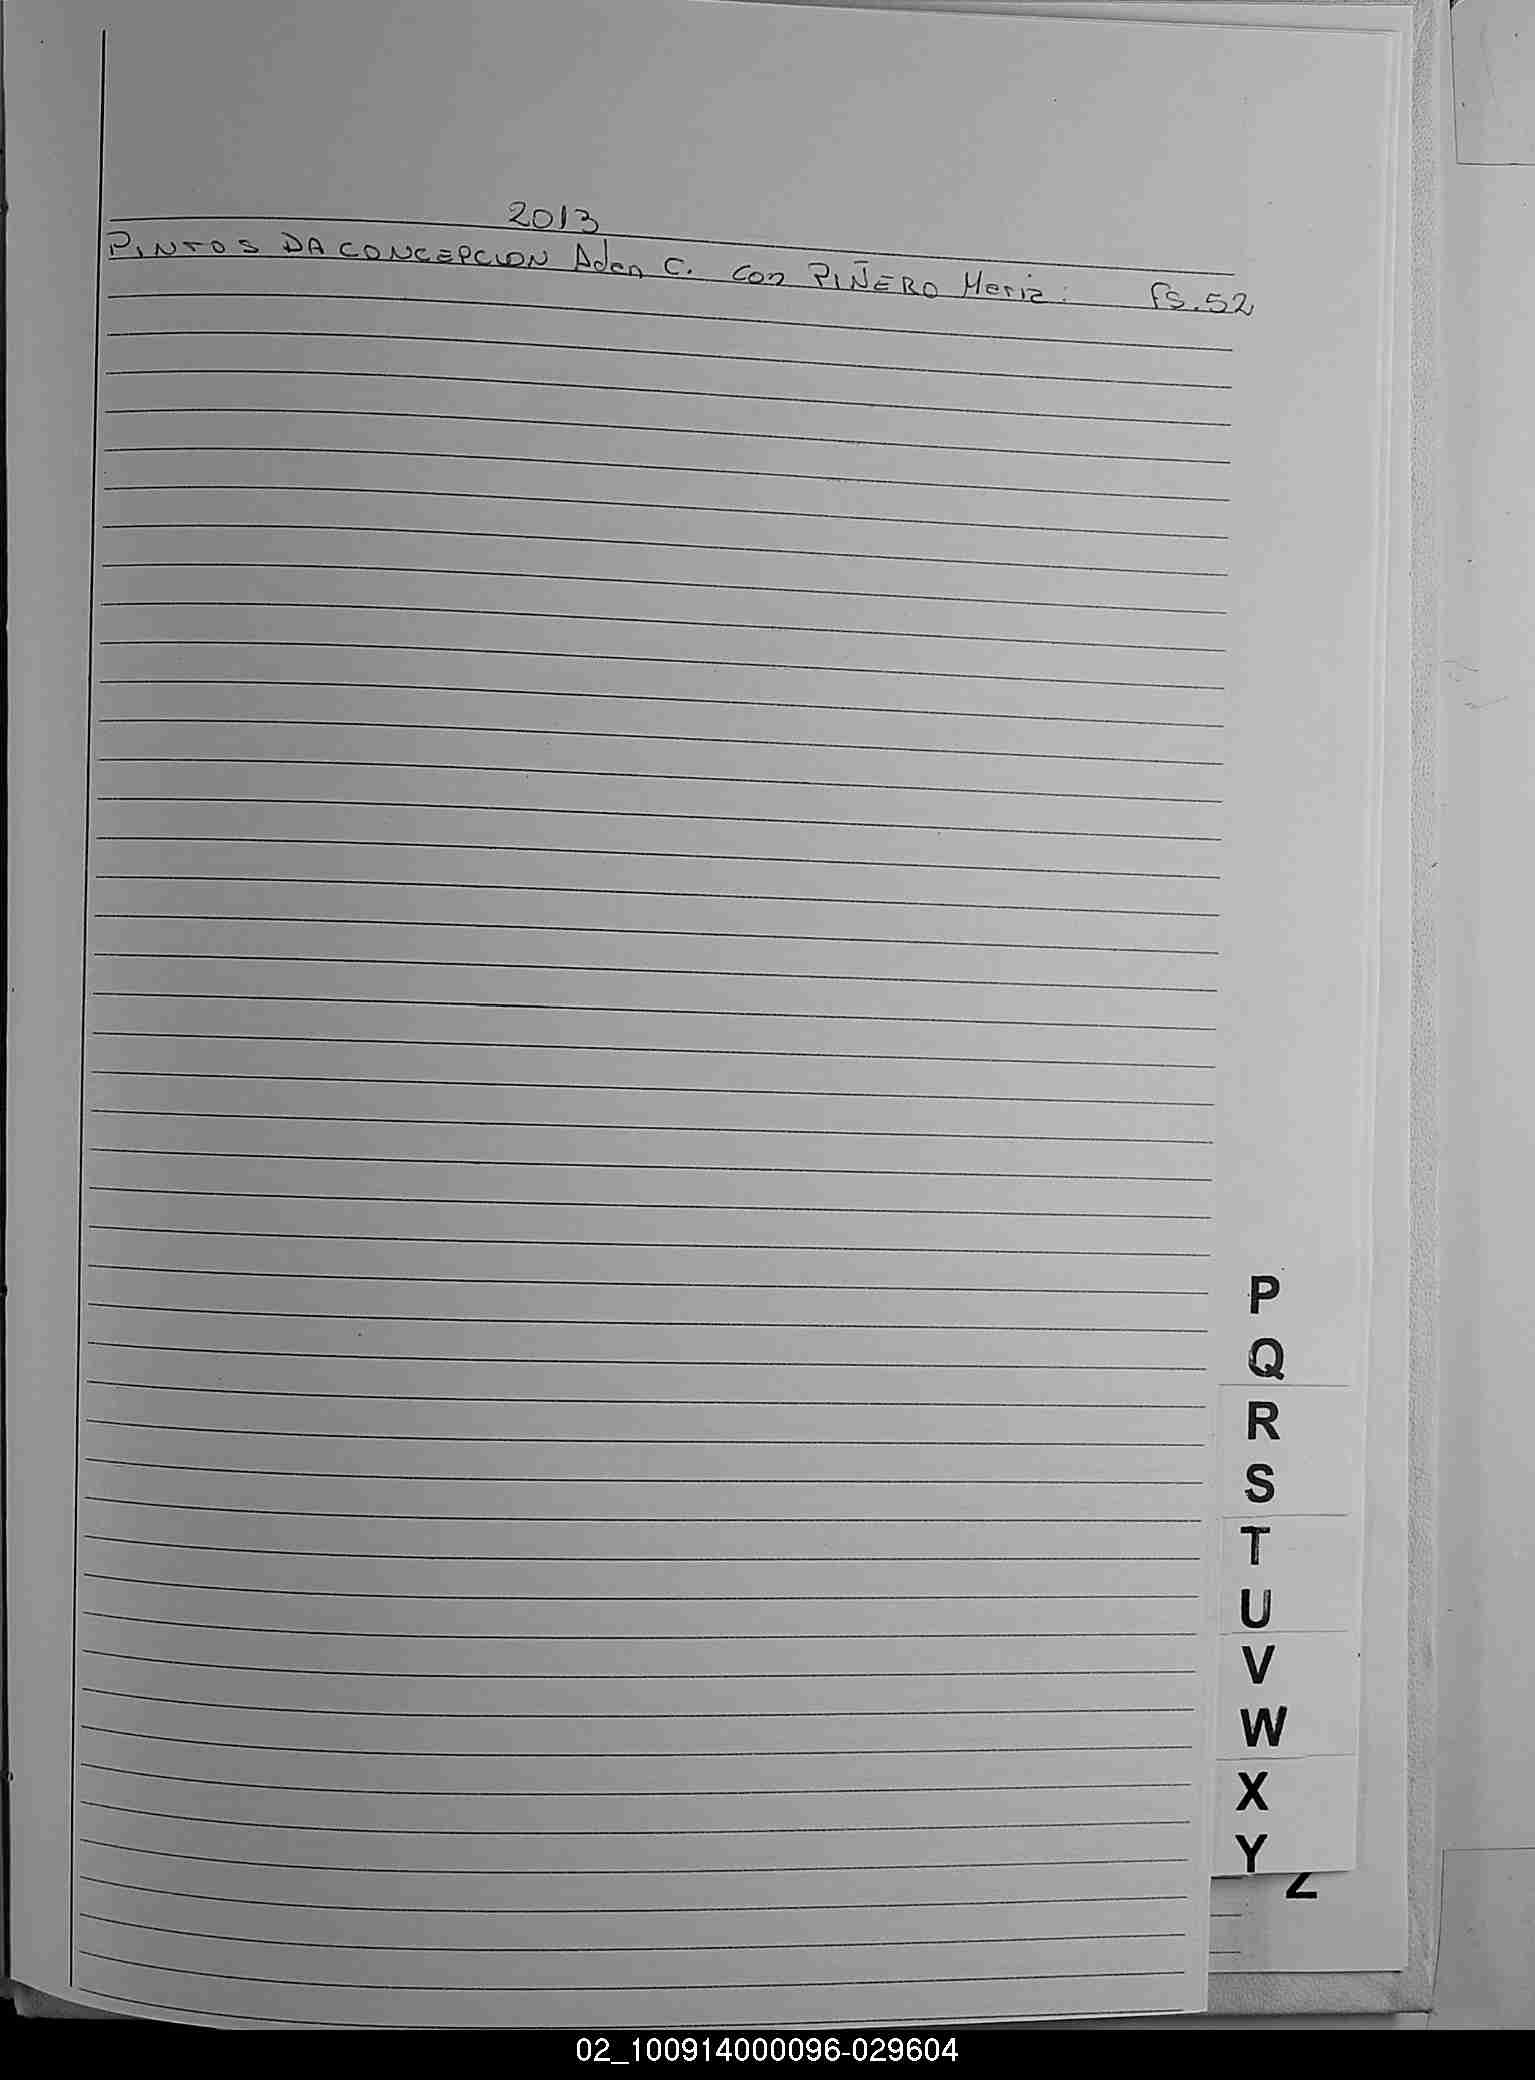 2013
PINTOS DA CONCEPCION Aden C. con PIÑERO Maria: fs. 52
P
Q
R
S
T
U
V
W
X
Y
Z
02_100914000096-029604